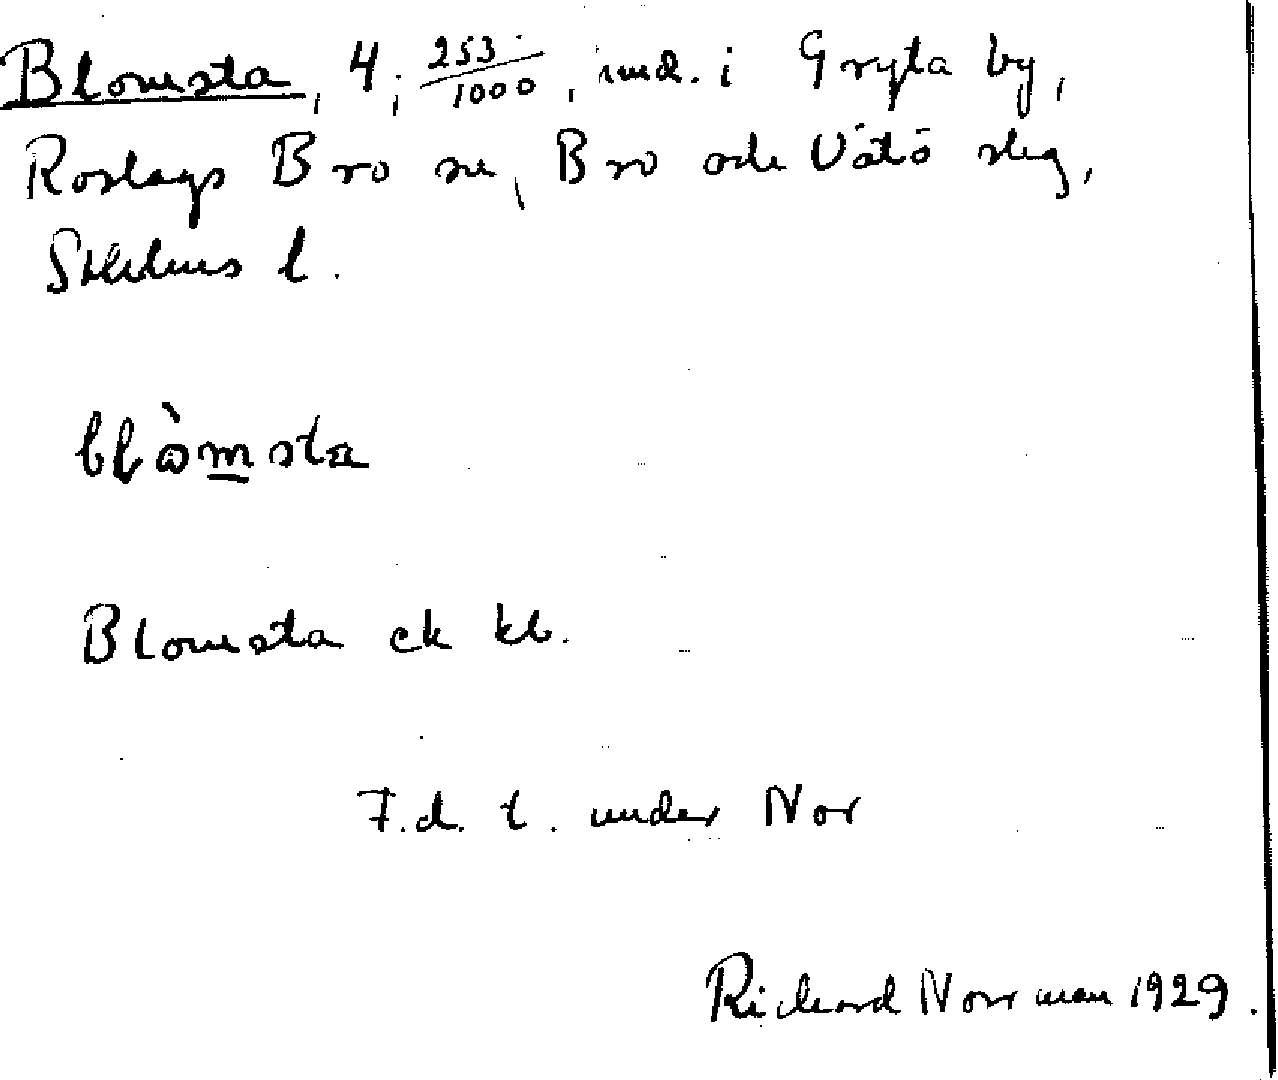 Blomsta, 4, 253/1000, und. i Gryta by,
Roslags Bro sn, Bro och Vätö skg,
Sthlms l.
blòmsta
Blomsta ek kb.
F.d. t. under Nor
Richard Norrman 1929.